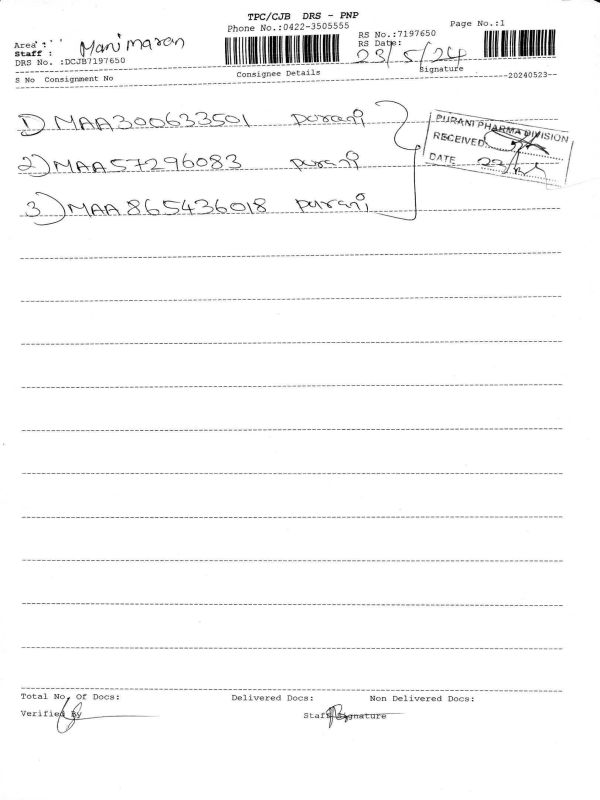 TPC/CJB DRS - PNP
Phone No.:0422-3505555
Page No.:1
RS No.:7197650
RS Date:
23/5/24
Area :
Staff : Manimaran
DRS No. :DCJB7197650
Signature
S No Consignment No Consignee Details 20240523
1) MAA300633501 purani
2) MAA57296083 purani
3) MAA865436018 purani
PURANI PHARMA DIVISION
RECEIVED
DATE
Total No. Of Docs: Delivered Docs: Non Delivered Docs:
Verified By Staff Signature